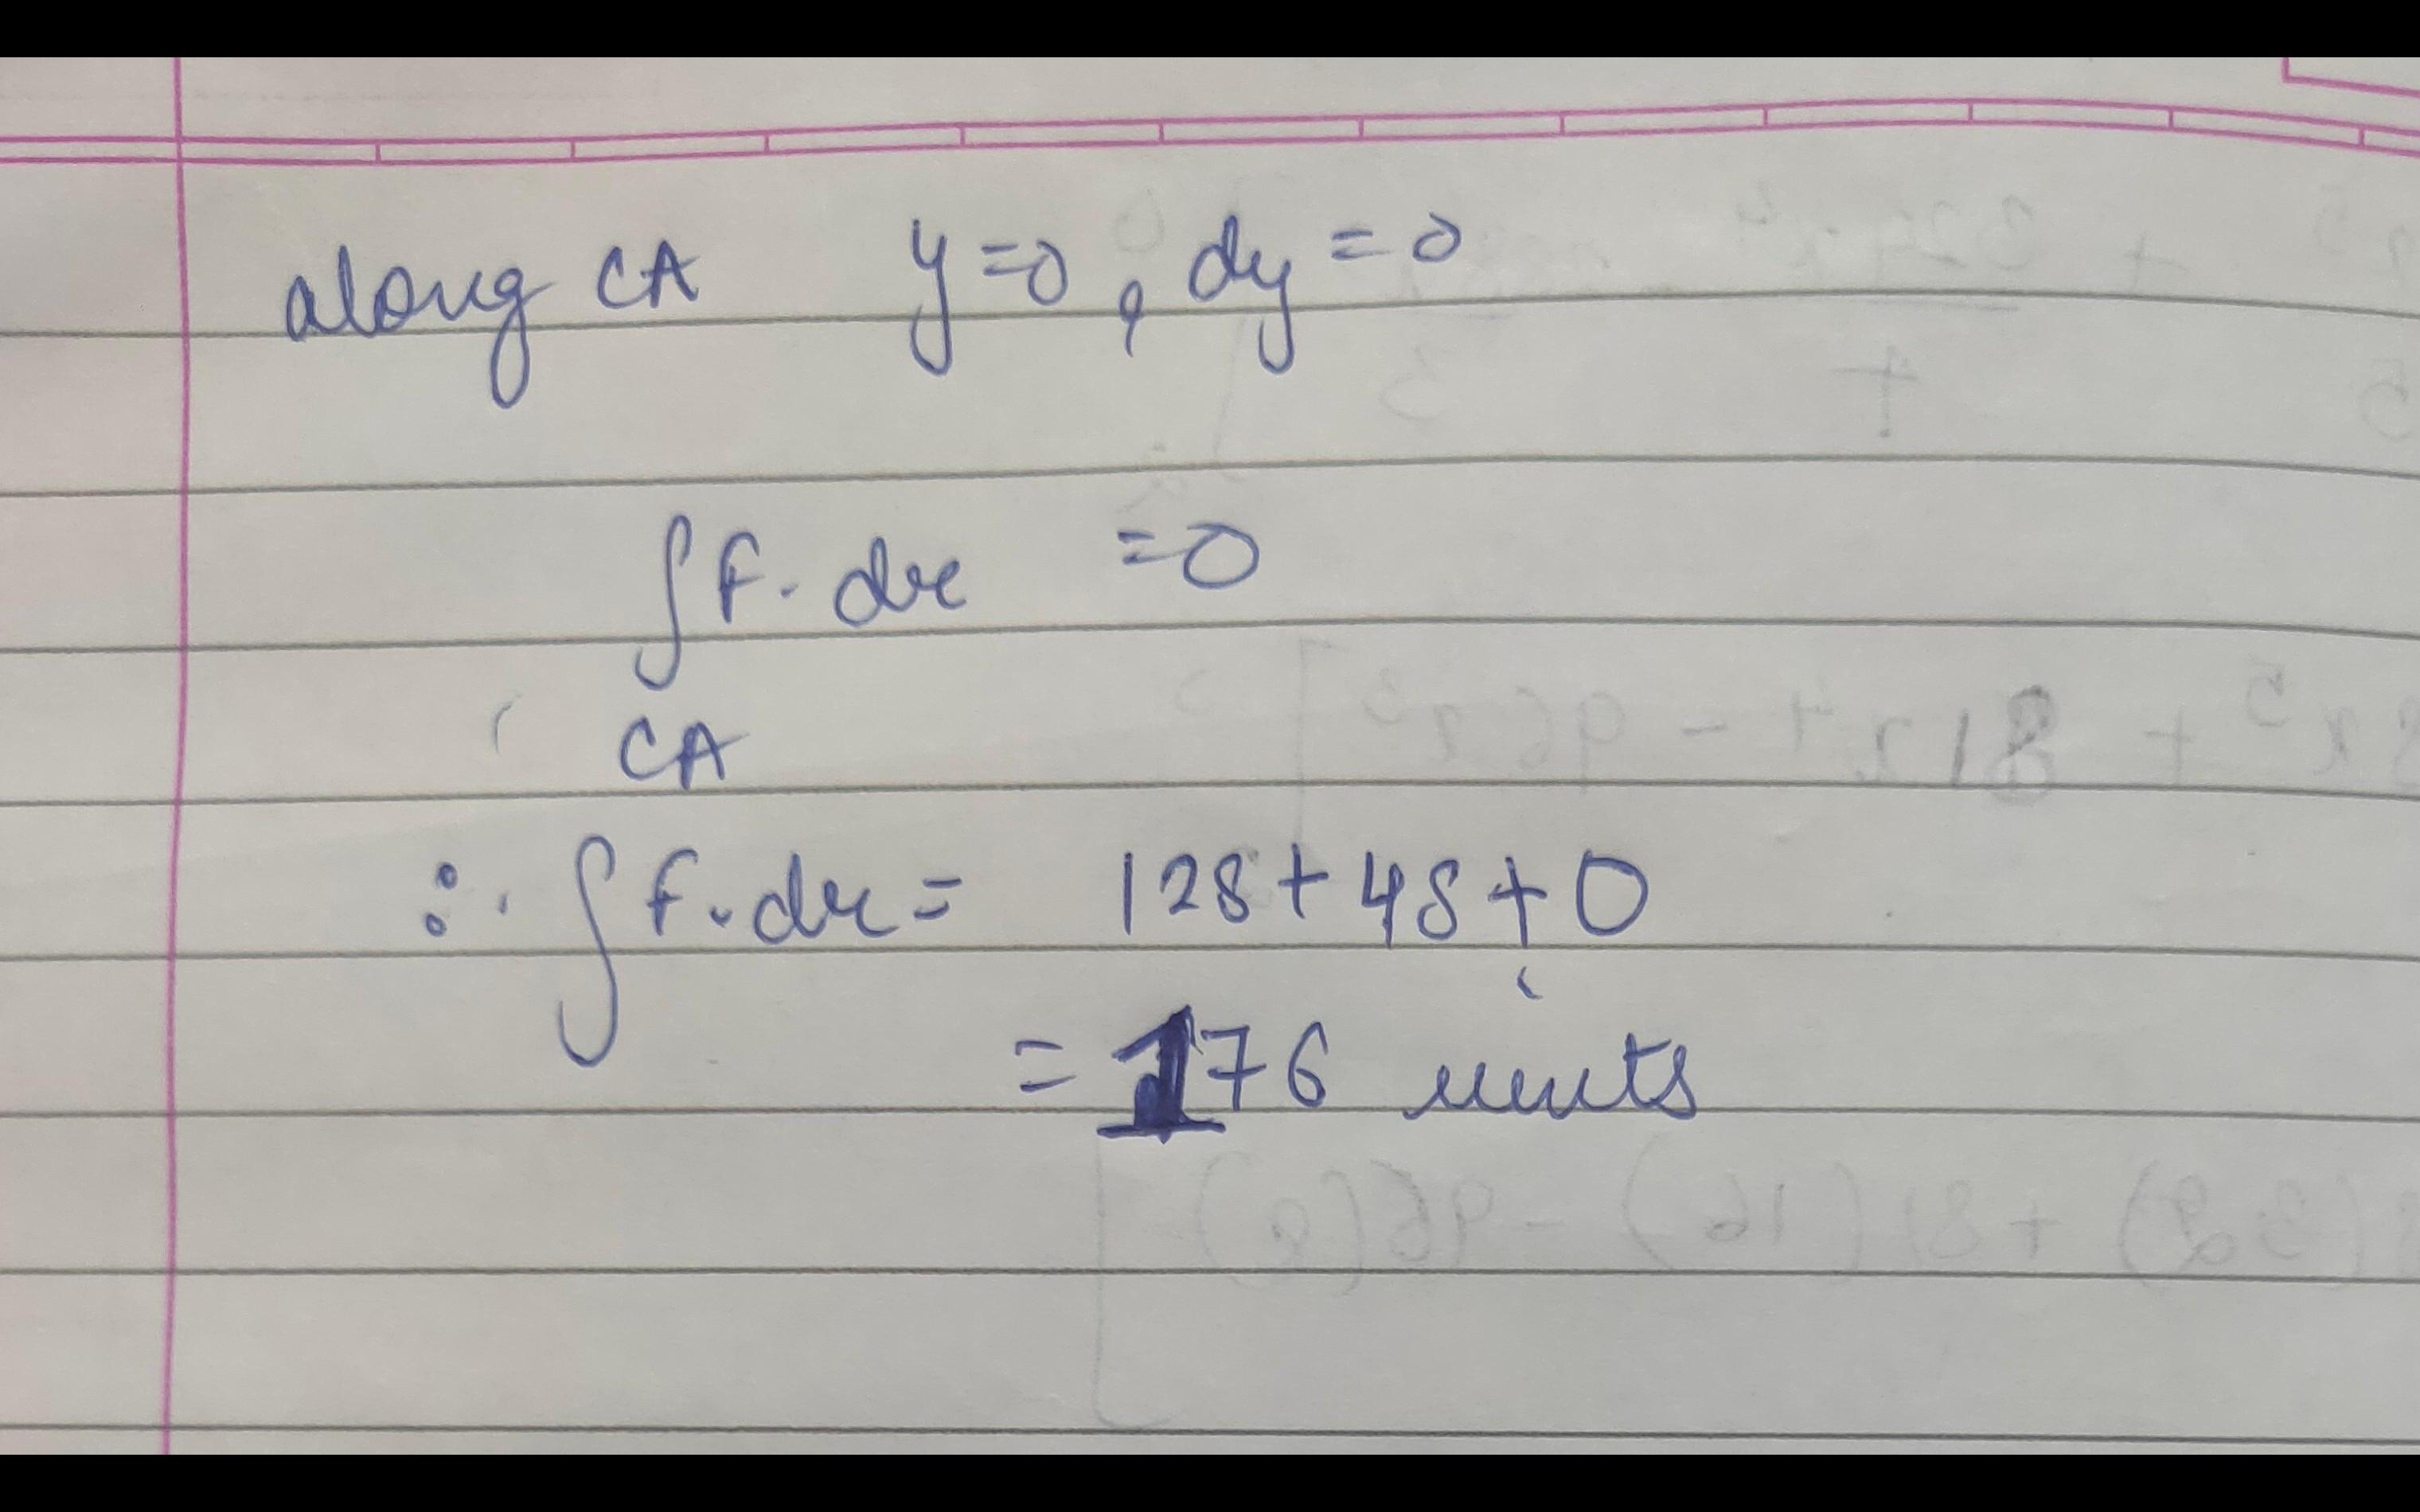 along CA y=0, dy=0
∫F. dr =0
CA
∴ ∫F.dr = 128+48+0
= 176 units